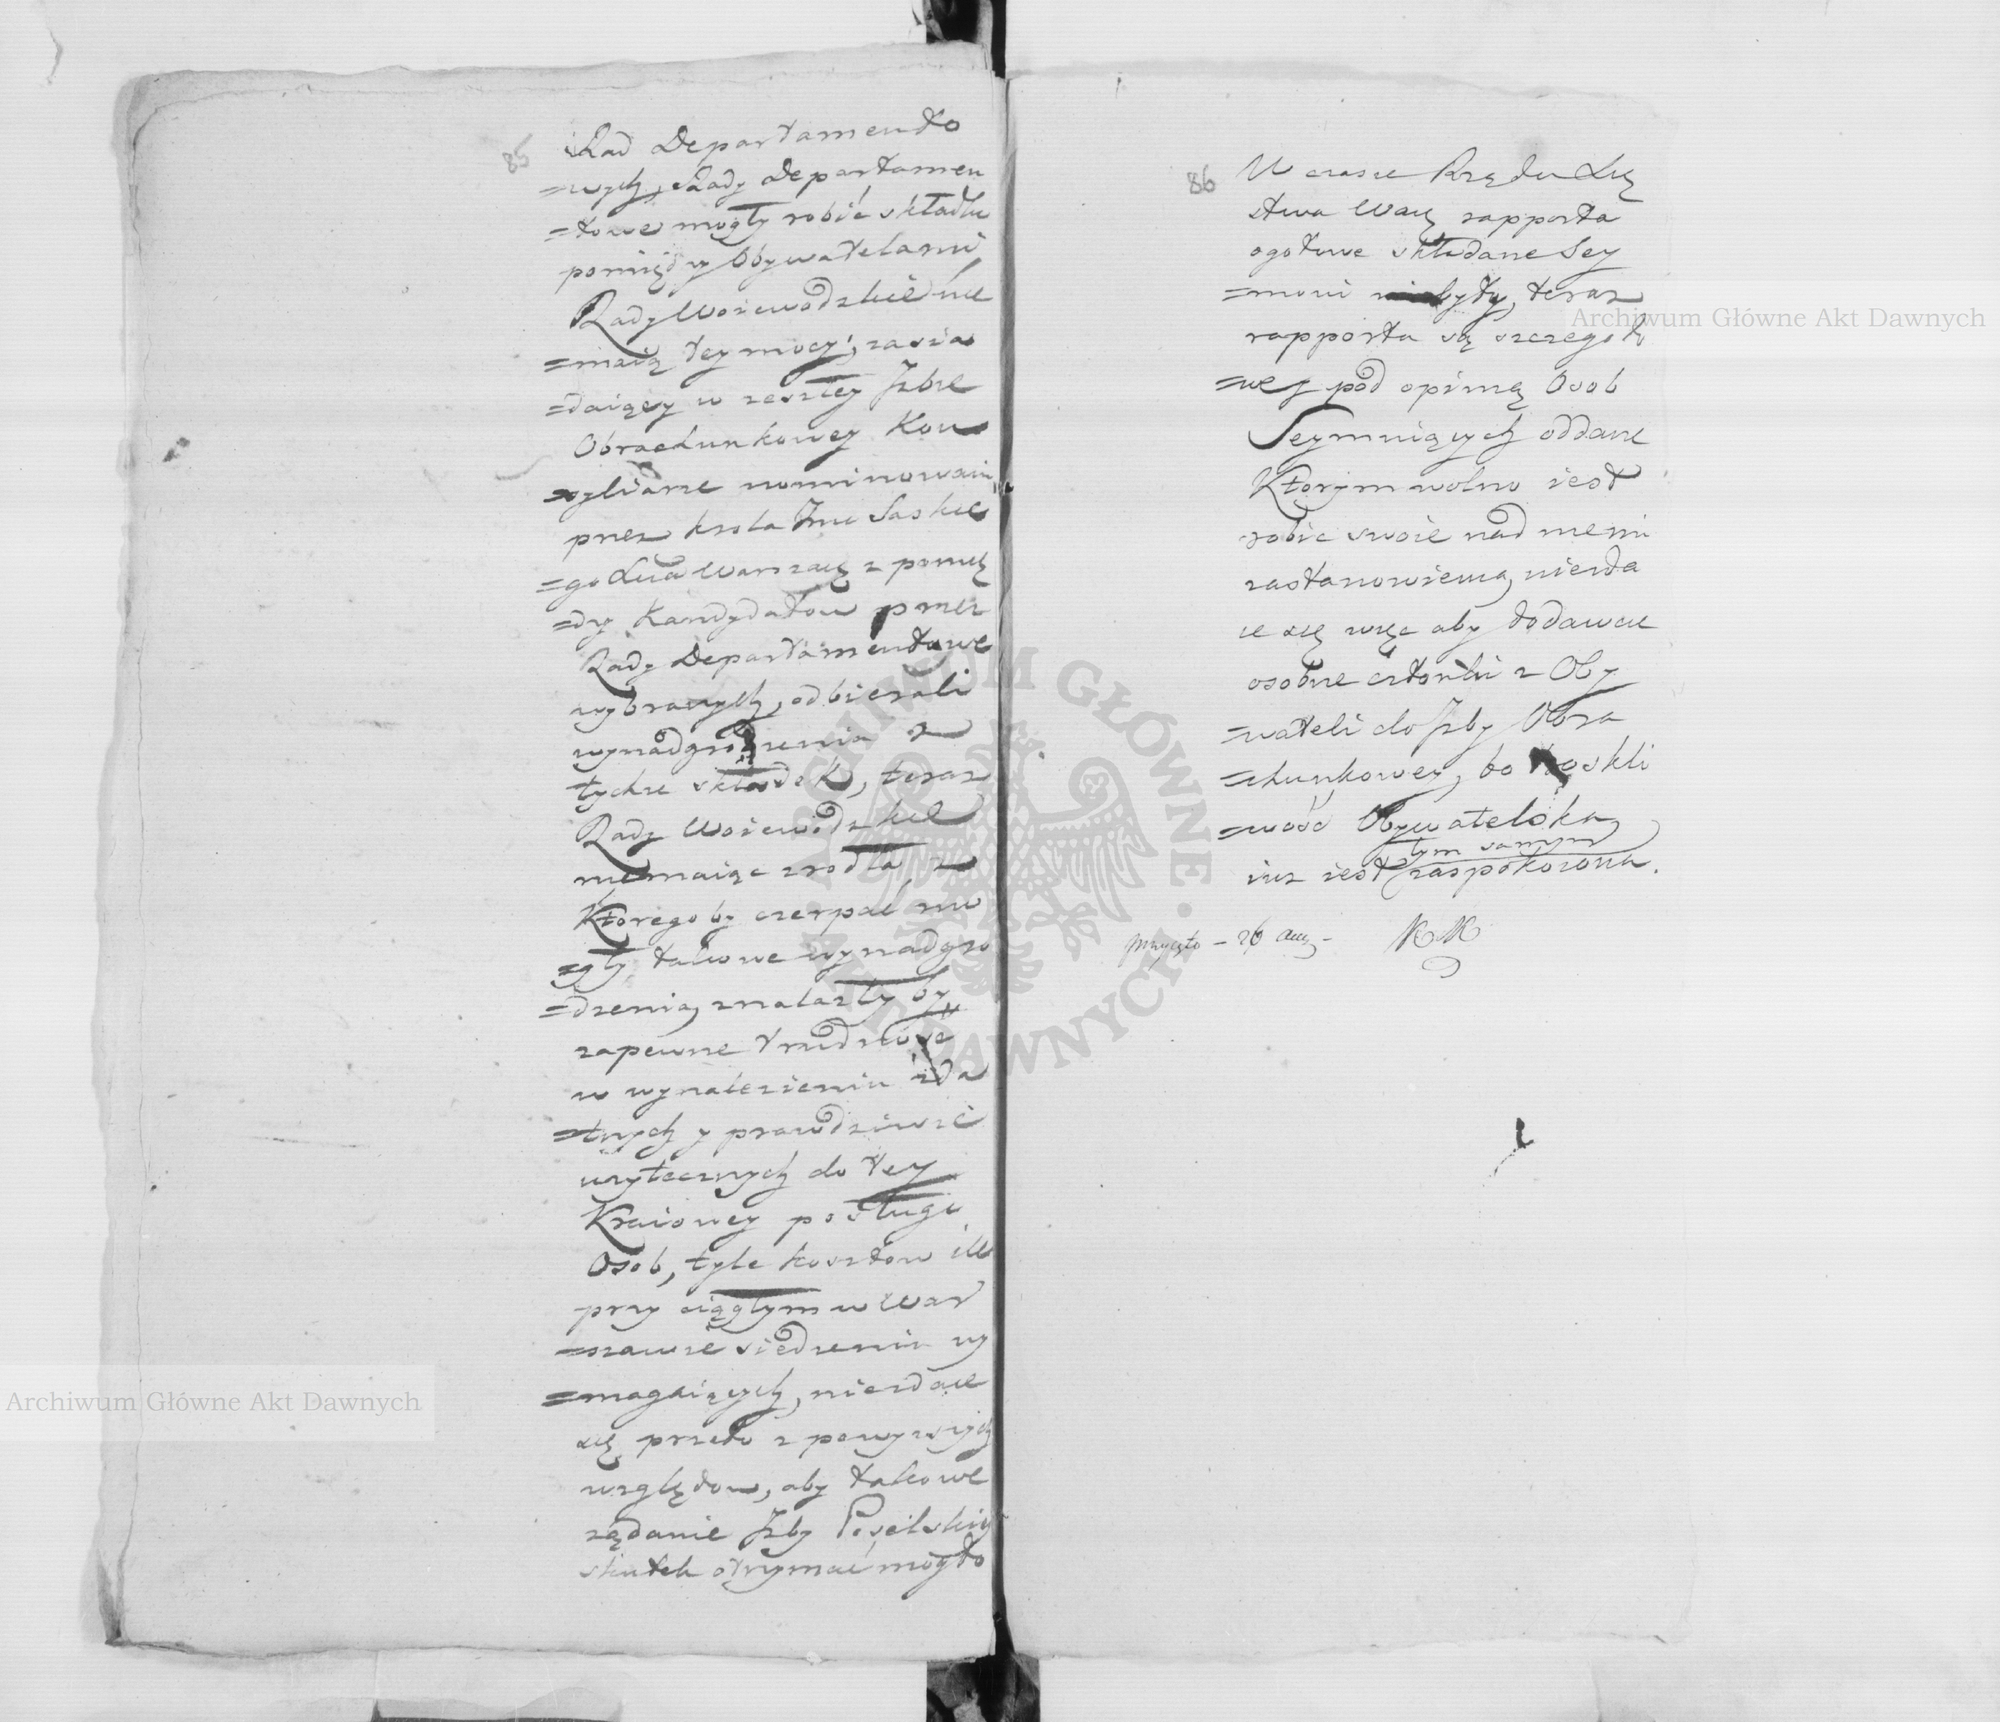 85
Rad Departamento
=wych, Rady Departamen
=towe mogły robić składki
pomiędzy Obywatelami,
Rady Woiewodzkie nie
=maią tey mocy; zasia
=daiący w zeszłey Izbie
Obrachunkowey Kon
=syliarze nominowani
przez krola Jmci Saskie
=go Xcia Warszaw: z pomię
=dzy Kandydatow przez
Rady Departamentowe
wybranych, odbierali
wynadgrodzenia z
tychże składek, teraz
Rady Woiewodzkie
niemaiąc zrodła, z
Ktorego by czerpać mo
=gły takowe wynadgro
=dzenia, znalazły by
zapewne trudność
w wynalezieniu zda
=tnych y prawdziwie
użytecznych do tey
Kraiowey posługi
Osob, tyle kosztow ile
przy ciągłym w War
=szawie siedzeniu wy
=magaiących, niezdaie
się przeto z powyższych
względow, aby takowe
żądanie Izby Poselskiey
skutek otrzymać mogło
86
W czasie Rządu Xię
stwa War: rapporta
ogołowe składane Sey
=mowi były, teraz
rapporta są szczegoło
=we y pod opinią Osob
Seymuiących oddane
Ktorym wolno iest
robić swoie nad niemi
zastanowienia, niezda
ie się więc aby dodawać
osobne członki z Oby
=wateli do Izby Obra
=chunkowey, bo troskli
=wość Obywatelska
tym samym
iuż iest zaspokoiona.
przyięto – 26 Aug –
Archiwum Główne Akt Dawnych
Archiwum Główne Akt Dawnych
ARCHIWUM GŁÓWNE · AKT DAWNYCH ·